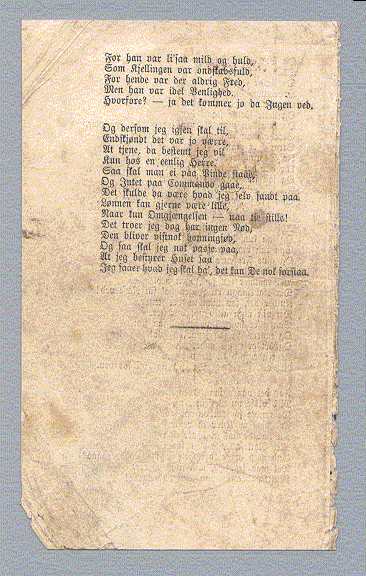 For han var li'saa mild og huld,
Som Kjellingen var ondskabsfuld,
For hende var der aldrig Fred,
Men han var idel Venlighed.
Hvorfore? — ja det kommer jo da Ingen ved.
Og dersom jeg igjen skal til,
Endskjøndt det var jo værre,
At tjene, da bestemt jeg vil
Kun hos en eenlig Herre.
Saa skal man ei paa Pinde staae,
Og Intet paa Commando gaae,
Det skulde da være hvad jeg selv fandt paa.
Lønnen kan gjerne være lille,
Naar kun Omgjængelsen — naa tie stille!
Det troer jeg dog har ingen Nød,
Den bliver vistnok honningsød,
Og saa skal jeg nok passe paa,
At jeg bestyrer Huset saa
Jeg faaer hvad jeg skal ha', det kan De nok forstaa.